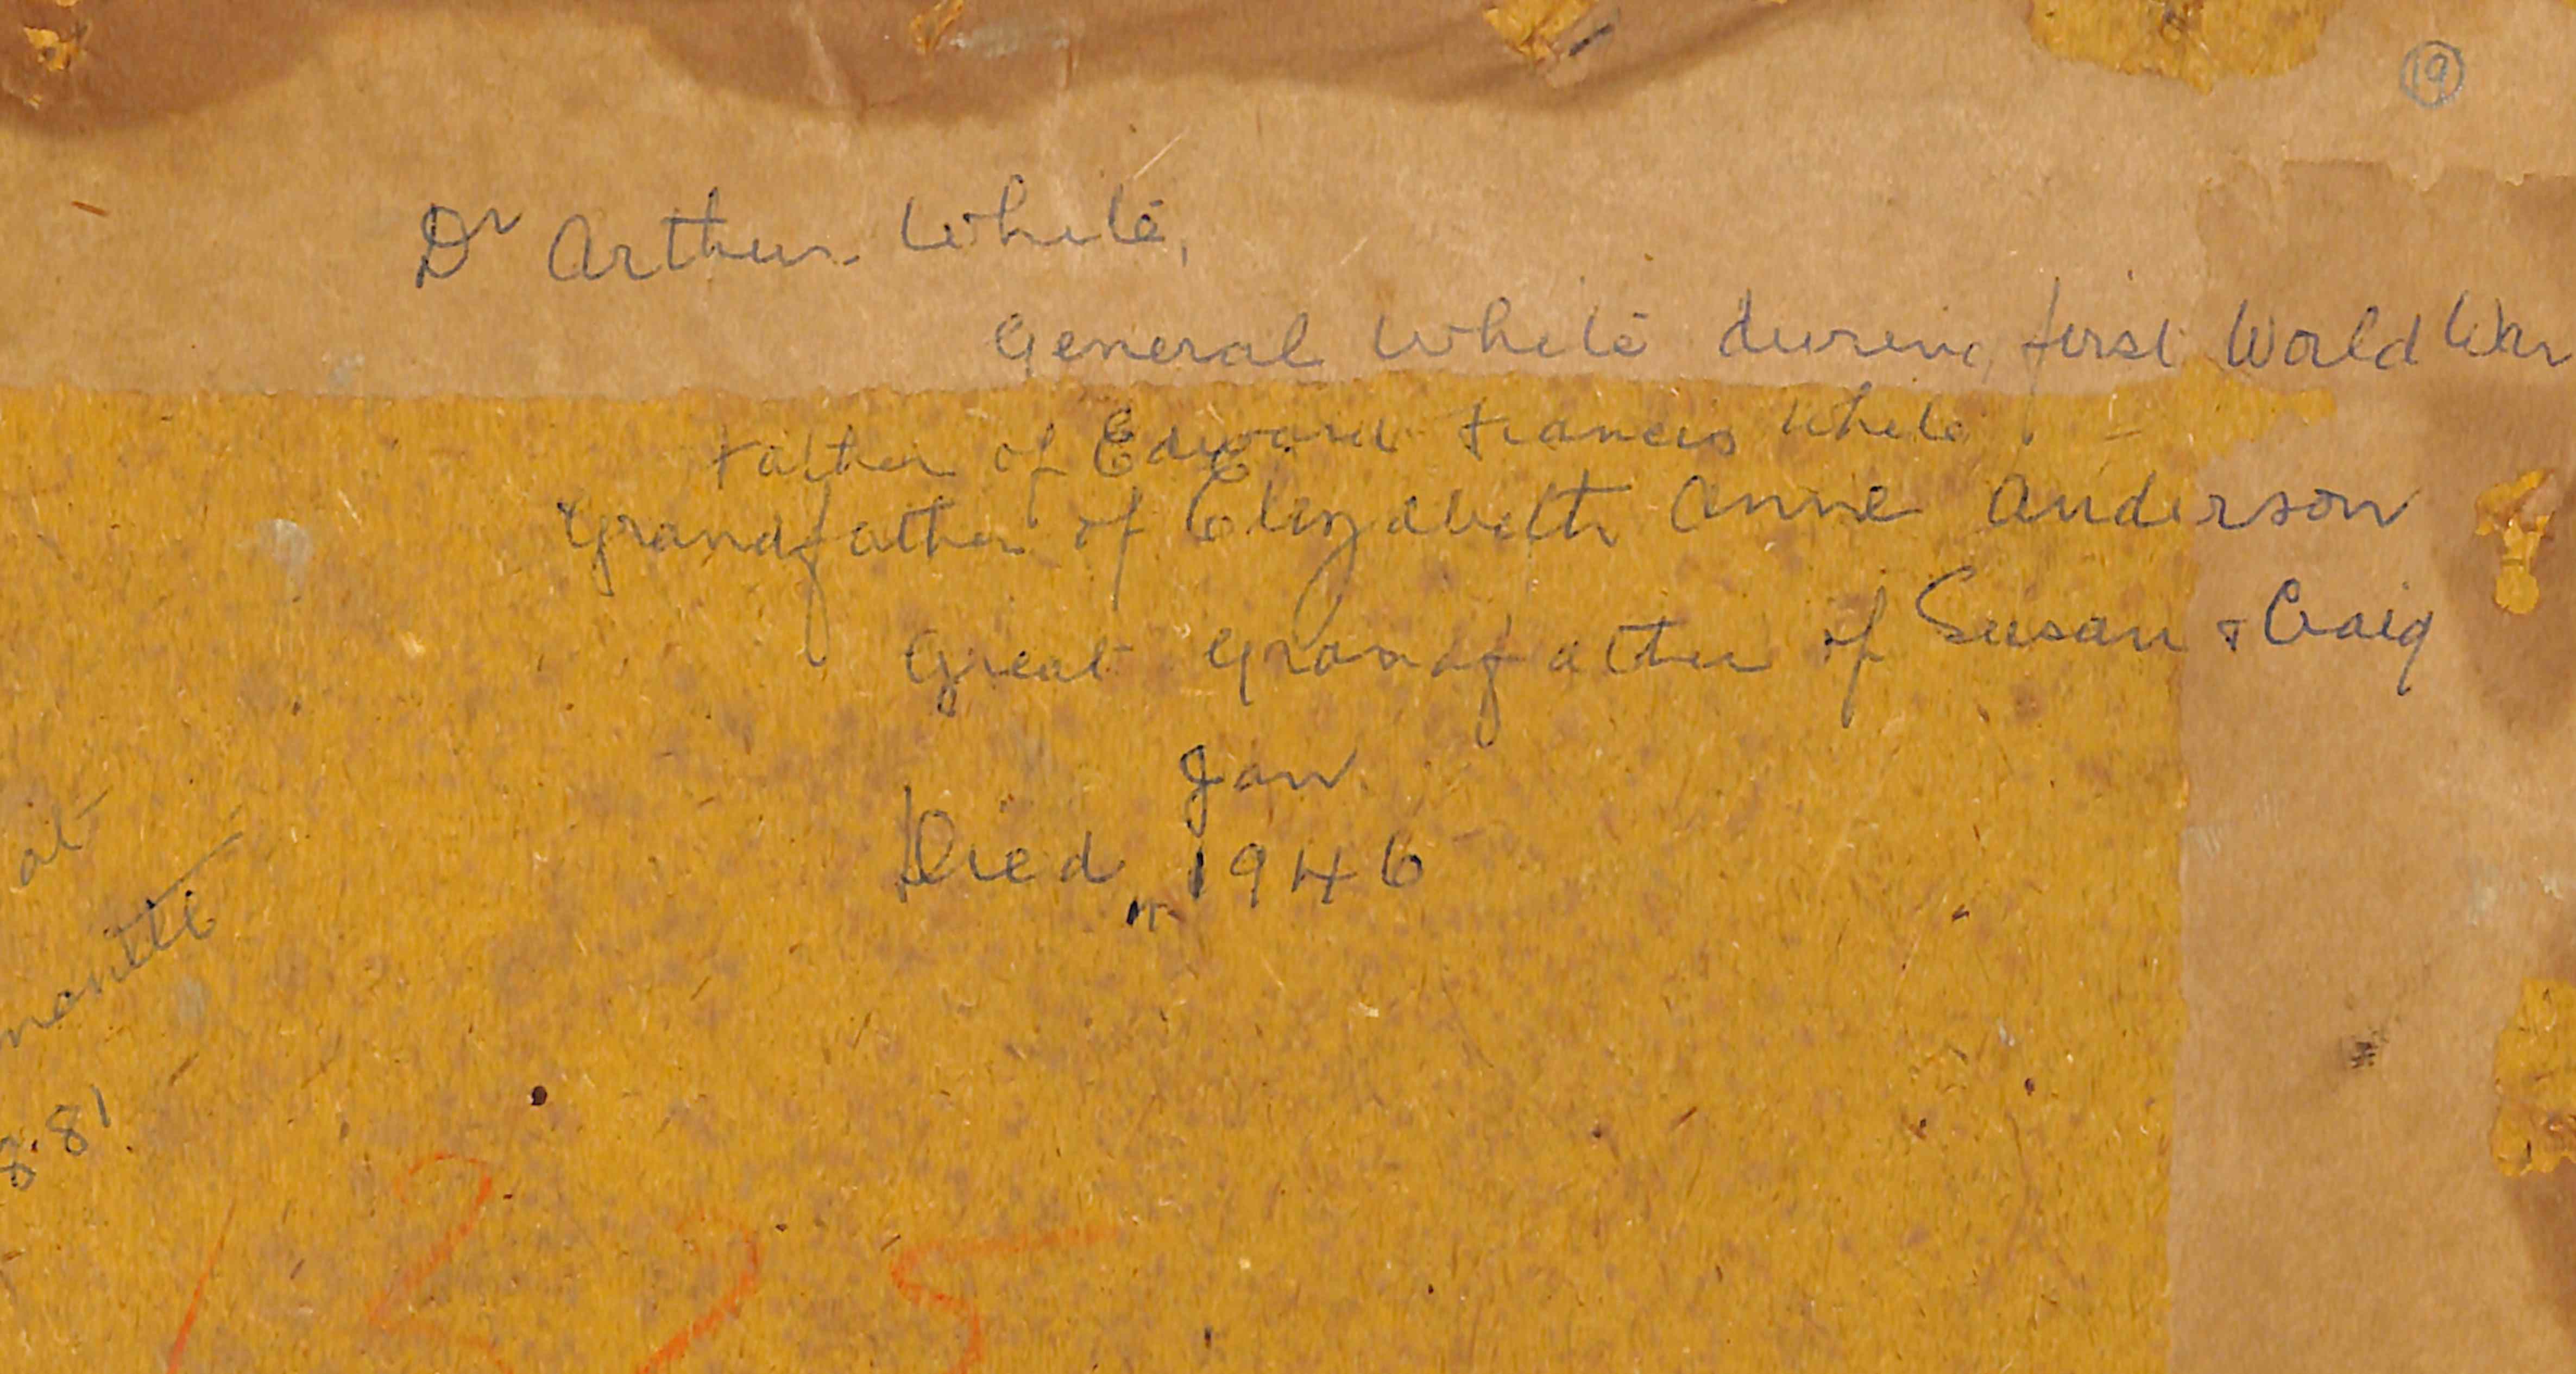 19
Dr Arthur White,
General White during first World War
Father of Edward Francis White
Grandfather of Elizabeth Anne Anderson
Great Grandfather of Susan & Craig
Jan
Died 1946
at
8.81
1225